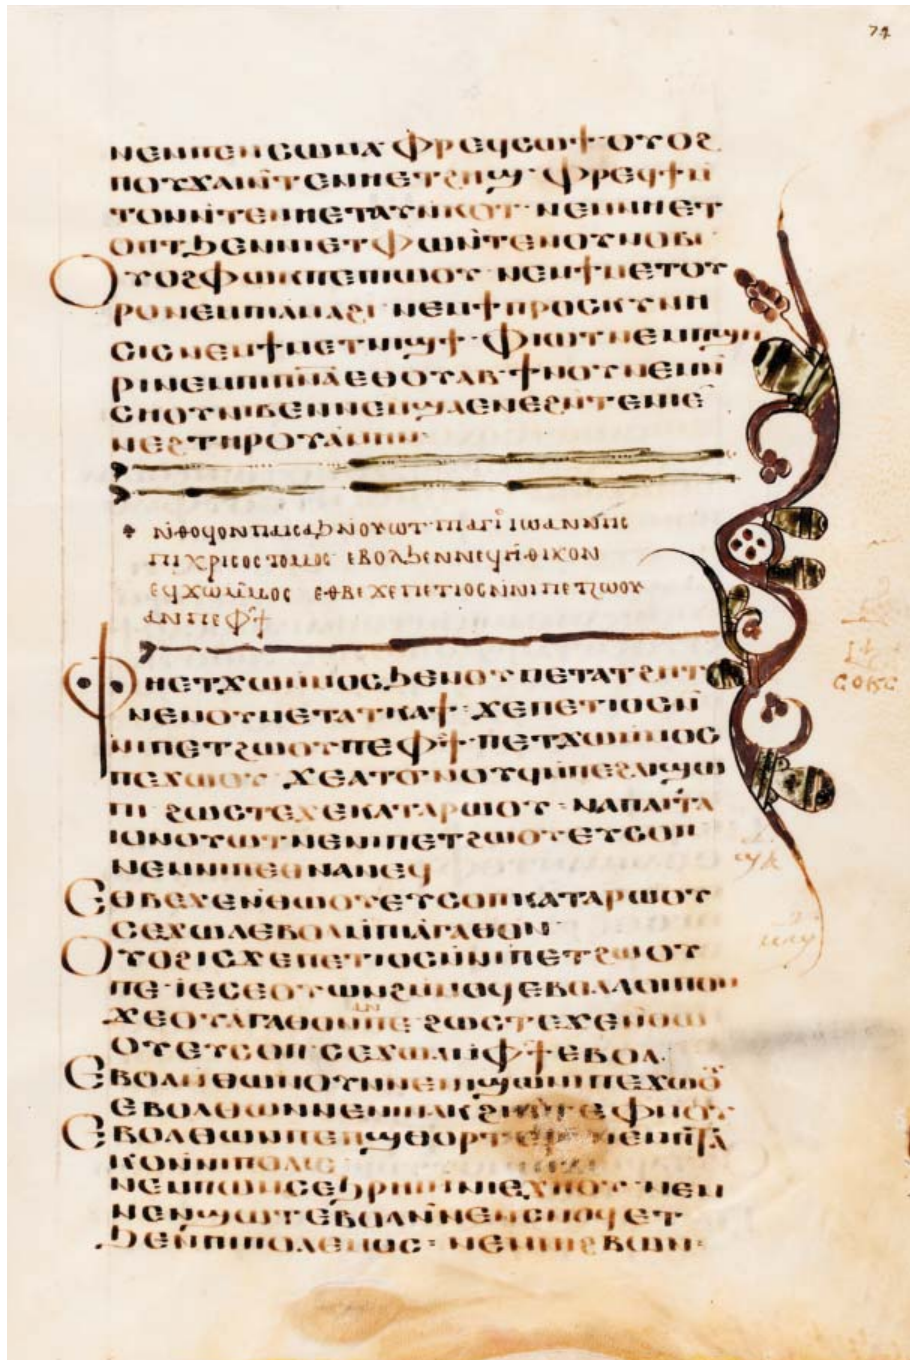 74
ⲛⲉⲙⲡⲉⲛⲥⲱⲙⲁ ⲫⲣⲉϥⲥⲱϯ ⲟⲩⲟϩ
ⲛⲟⲩϫⲁⲓⲛ̀ⲧⲉⲛⲛⲉⲧϩⲓⲱ ⲫⲣⲉϥϯⲙ̀
ⲧⲟⲛⲛ̀ⲧⲉⲛⲛⲉⲧⲁⲩⲛ̀ⲕⲟⲧ ⲛⲉⲙⲛⲉⲧ
ϧⲉⲛⲛⲓⲉⲧⲫⲱⲛ̀ⲧⲉⲛⲟⲩⲛⲟⲃⲓ
ⲟⲩⲟϩⲫⲱⲕⲡⲉⲡⲓⲱⲟⲩ ⲛⲉⲙϯⲙⲉⲧⲟⲩ
ⲣⲟⲛⲉⲙⲡⲓⲁⲙⲁϩⲓ ⲛⲉⲙϯⲡⲣⲟⲥⲕⲩⲛⲏ
ⲥⲓⲥⲛⲉⲙϯⲙⲉⲧⲛⲓϣϯ ⲫⲓⲱⲧⲛⲉⲙⲡϣⲏ
ⲣⲓⲛⲉⲙⲡⲓⲡ̅ⲛ̅ⲁ̅ⲉⲑⲟⲩⲁⲃ ϯⲛⲟⲩⲛⲉⲙⲛ̀
ⲥⲏⲟⲩⲛⲓⲃⲉⲛⲛⲉⲙϣⲁⲉⲛⲉϩⲛ̀ⲧⲉⲛⲓⲉ̀
ⲛⲉϩⲧⲏⲣⲟⲩⲁⲙⲏⲛ
ⲛ̀ⲑⲟϥⲟⲛⲡⲁⲓⲥⲁϧⲛⲟⲩⲱⲧ ⲡⲓⲁⲅⲓ ⲓⲱⲁⲛⲛⲏⲥ
ⲡⲓⲭⲣⲓⲥⲟⲥⲧⲟⲙⲟⲥ ⲉⲃⲟⲗϧⲉⲛⲛⲉϥⲏ̀ⲑⲓⲕⲟⲛ
ⲉϥϫⲱⲙ̀ⲙⲟⲥ ⲉⲑⲃⲉϫⲉⲡⲉⲧⲓⲟⲥⲙ̀ⲛⲓⲡⲉⲧϩⲱⲟⲩ
ⲁⲛⲡⲉⲫϯ
ⲫⲏⲉⲧϫⲱⲙ̀ⲙⲟⲥϧⲉⲛⲟⲩⲙⲉⲧⲁⲧϩⲏⲧ
ⲛⲉⲙⲟⲩⲙⲉⲧⲁⲧⲕⲁϯ ϫⲉⲡⲉⲧⲓⲟⲥⲙ̀
ⲛⲓⲡⲉⲧϩⲱⲟⲩⲡⲉⲫϯ ⲡⲉⲧϫⲱⲙ̀ⲙⲟⲥ
ⲡⲉϫⲱⲟⲩ ϫⲉⲁⲧϭⲛⲟⲩϥⲙ̀ⲡⲉϩⲗⲓϣⲱ
ⲡⲓ ϩⲱⲥⲧⲉϫⲉⲕⲁⲧⲁⲣⲱⲟⲩ ⲛⲁⲡⲁⲓⲉ̀ⲧⲁ
ⲓⲟⲛⲟⲩⲱⲧⲛⲉⲛⲓⲡⲉⲧϩⲱⲟⲩⲉⲩⲥⲟⲡ
ⲛⲉⲙⲛⲓⲡⲉⲑⲛⲁⲛⲉϥ
ⲉⲑⲃⲉϫⲉⲛ̀ⲑⲱⲟⲩⲉⲩⲥⲟⲡⲕⲁⲧⲁⲣⲱⲟⲩ
ⲥⲉϫⲱⲗⲉⲃⲟⲗⲙ̀ⲡⲓⲁ̀ⲅⲁⲑⲟⲛ
ⲟⲩⲟϩⲓⲥϫⲉⲡⲉⲧⲓⲟⲥⲙ̀ⲛⲓⲡⲉⲧϩⲱⲟⲩ
ⲡⲉ ⲓⲉⲥⲉⲟⲩⲱⲛϩⲙ̀ⲙⲟϥⲉⲃⲟⲗⲗⲟⲓⲡⲟⲛ
ϫⲉⲟⲩⲁⲅⲁⲑⲟⲛⲡⲉ ϩⲱⲥⲧⲉϫⲉⲛ̀ⲑⲱ
ⲟⲩⲉⲩⲥⲟⲡ ⲥⲉϫⲱⲗⲙ̀ⲫϯⲉⲃⲟⲗ
ⲉⲃⲟⲗⲛ̀ⲑⲱⲛⲟⲩⲛⲛⲉⲛϣⲱⲛⲓⲡⲉϫⲱⲟⲩ
ⲉⲃⲟⲗⲑⲱⲛⲛⲉⲛⲙⲕⲁϩ
ⲉⲃⲟⲗⲑⲱⲛⲡⲉⲛϣⲑⲟⲣⲧⲉⲣ ⲛⲉⲙⲡ̀ⲧⲁ
ⲕⲟⲛⲛⲓⲡⲟⲗⲓⲥ
ⲛⲉⲙⲡⲱⲙⲥⲉϧⲣⲏⲓⲛ̀ⲛⲓⲉϫⲏⲟⲩ ⲛⲉⲙ
ⲛⲉⲛϣⲱⲧⲉⲃⲟⲗⲛ̀ⲛⲉⲛⲥⲛⲟϥⲉⲧ
ϧⲉⲛⲛⲓⲡⲟⲗⲉⲙⲟⲥ ⲛⲉⲙⲛⲓϩⲃⲱⲛ